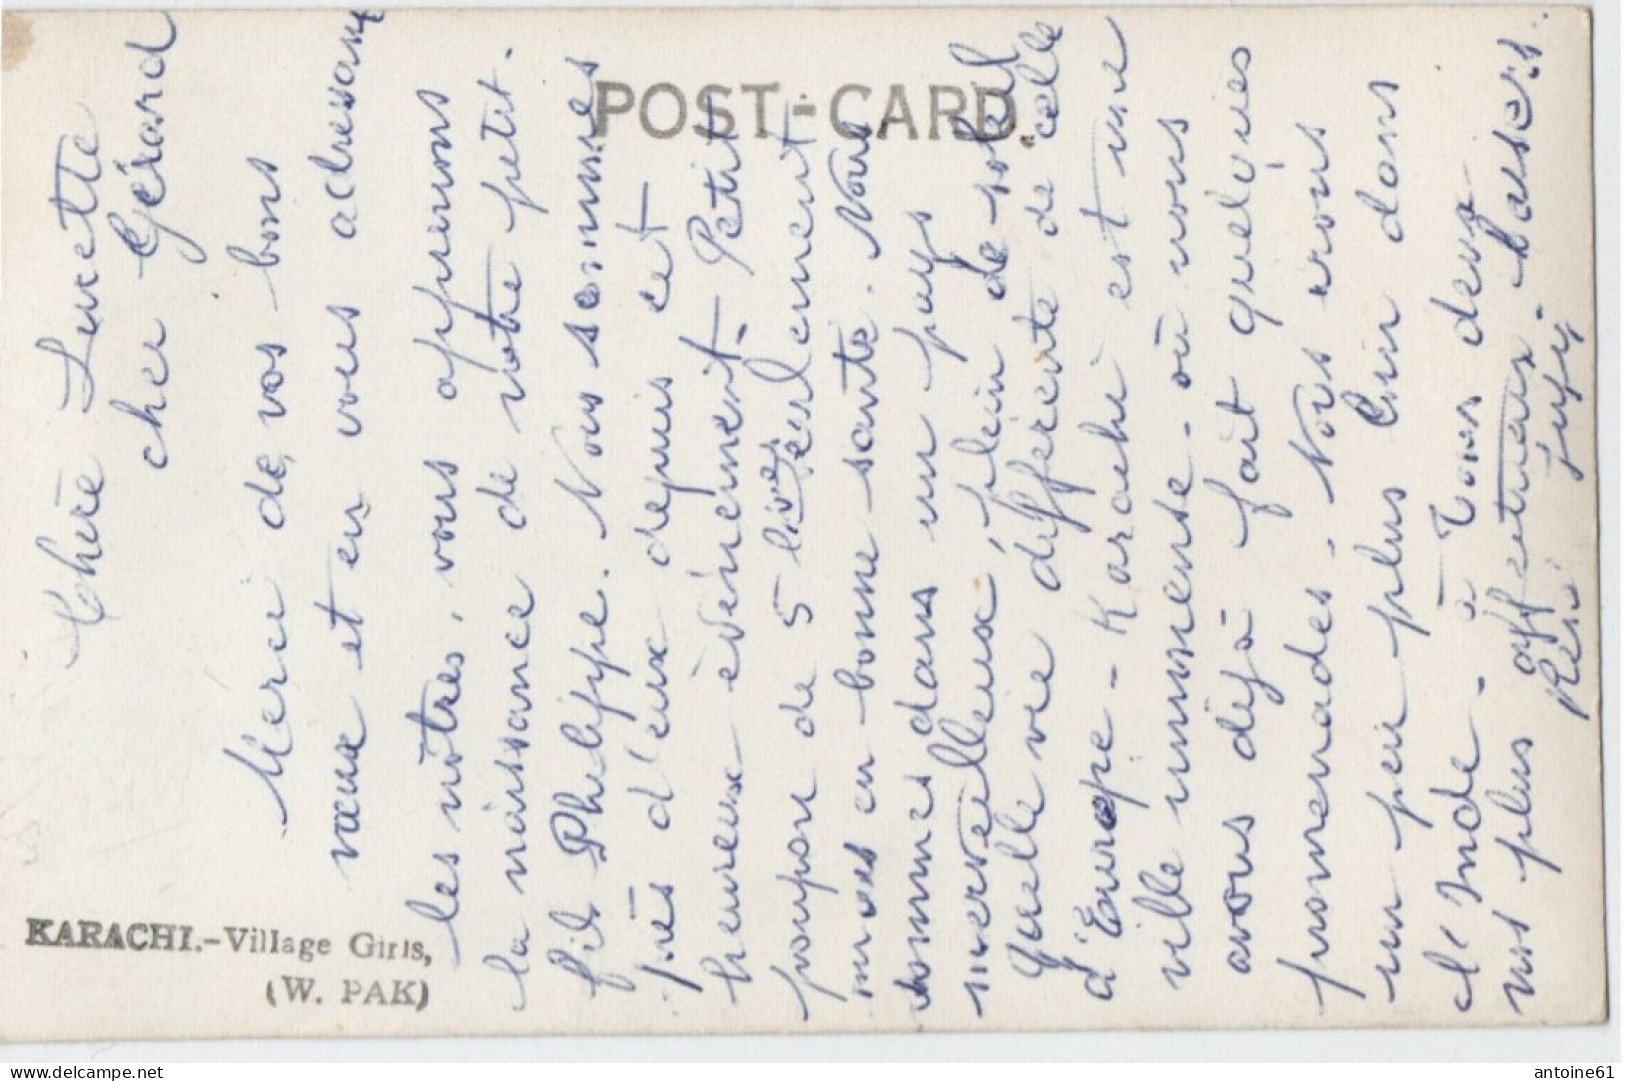 POST-CARD.
KARACHI.-Village Girls,
(W. PAK)
Chère Lucette
cher Gérard
Merci de vos bons
vœux et en vous adressant
les nôtres, vous apprenons
la naissance de notre petit.
fils Philippe. Nous sommes
près d'eux depuis cet
heureux évènement. Petit
poupon de 5 livres seulement.
mais en bonne santé. Nous
sommes dans un pays
merveilleux, plein de soleil
quelle vie différente de celle
d'Europe - Karachi est une
ville immense - où nous
avons déjà fait quelques
promenades - Nous irons
un peu plus loin dans
l'Inde - à Tous deux
nos plus affectueux baisers.
René
antoine61